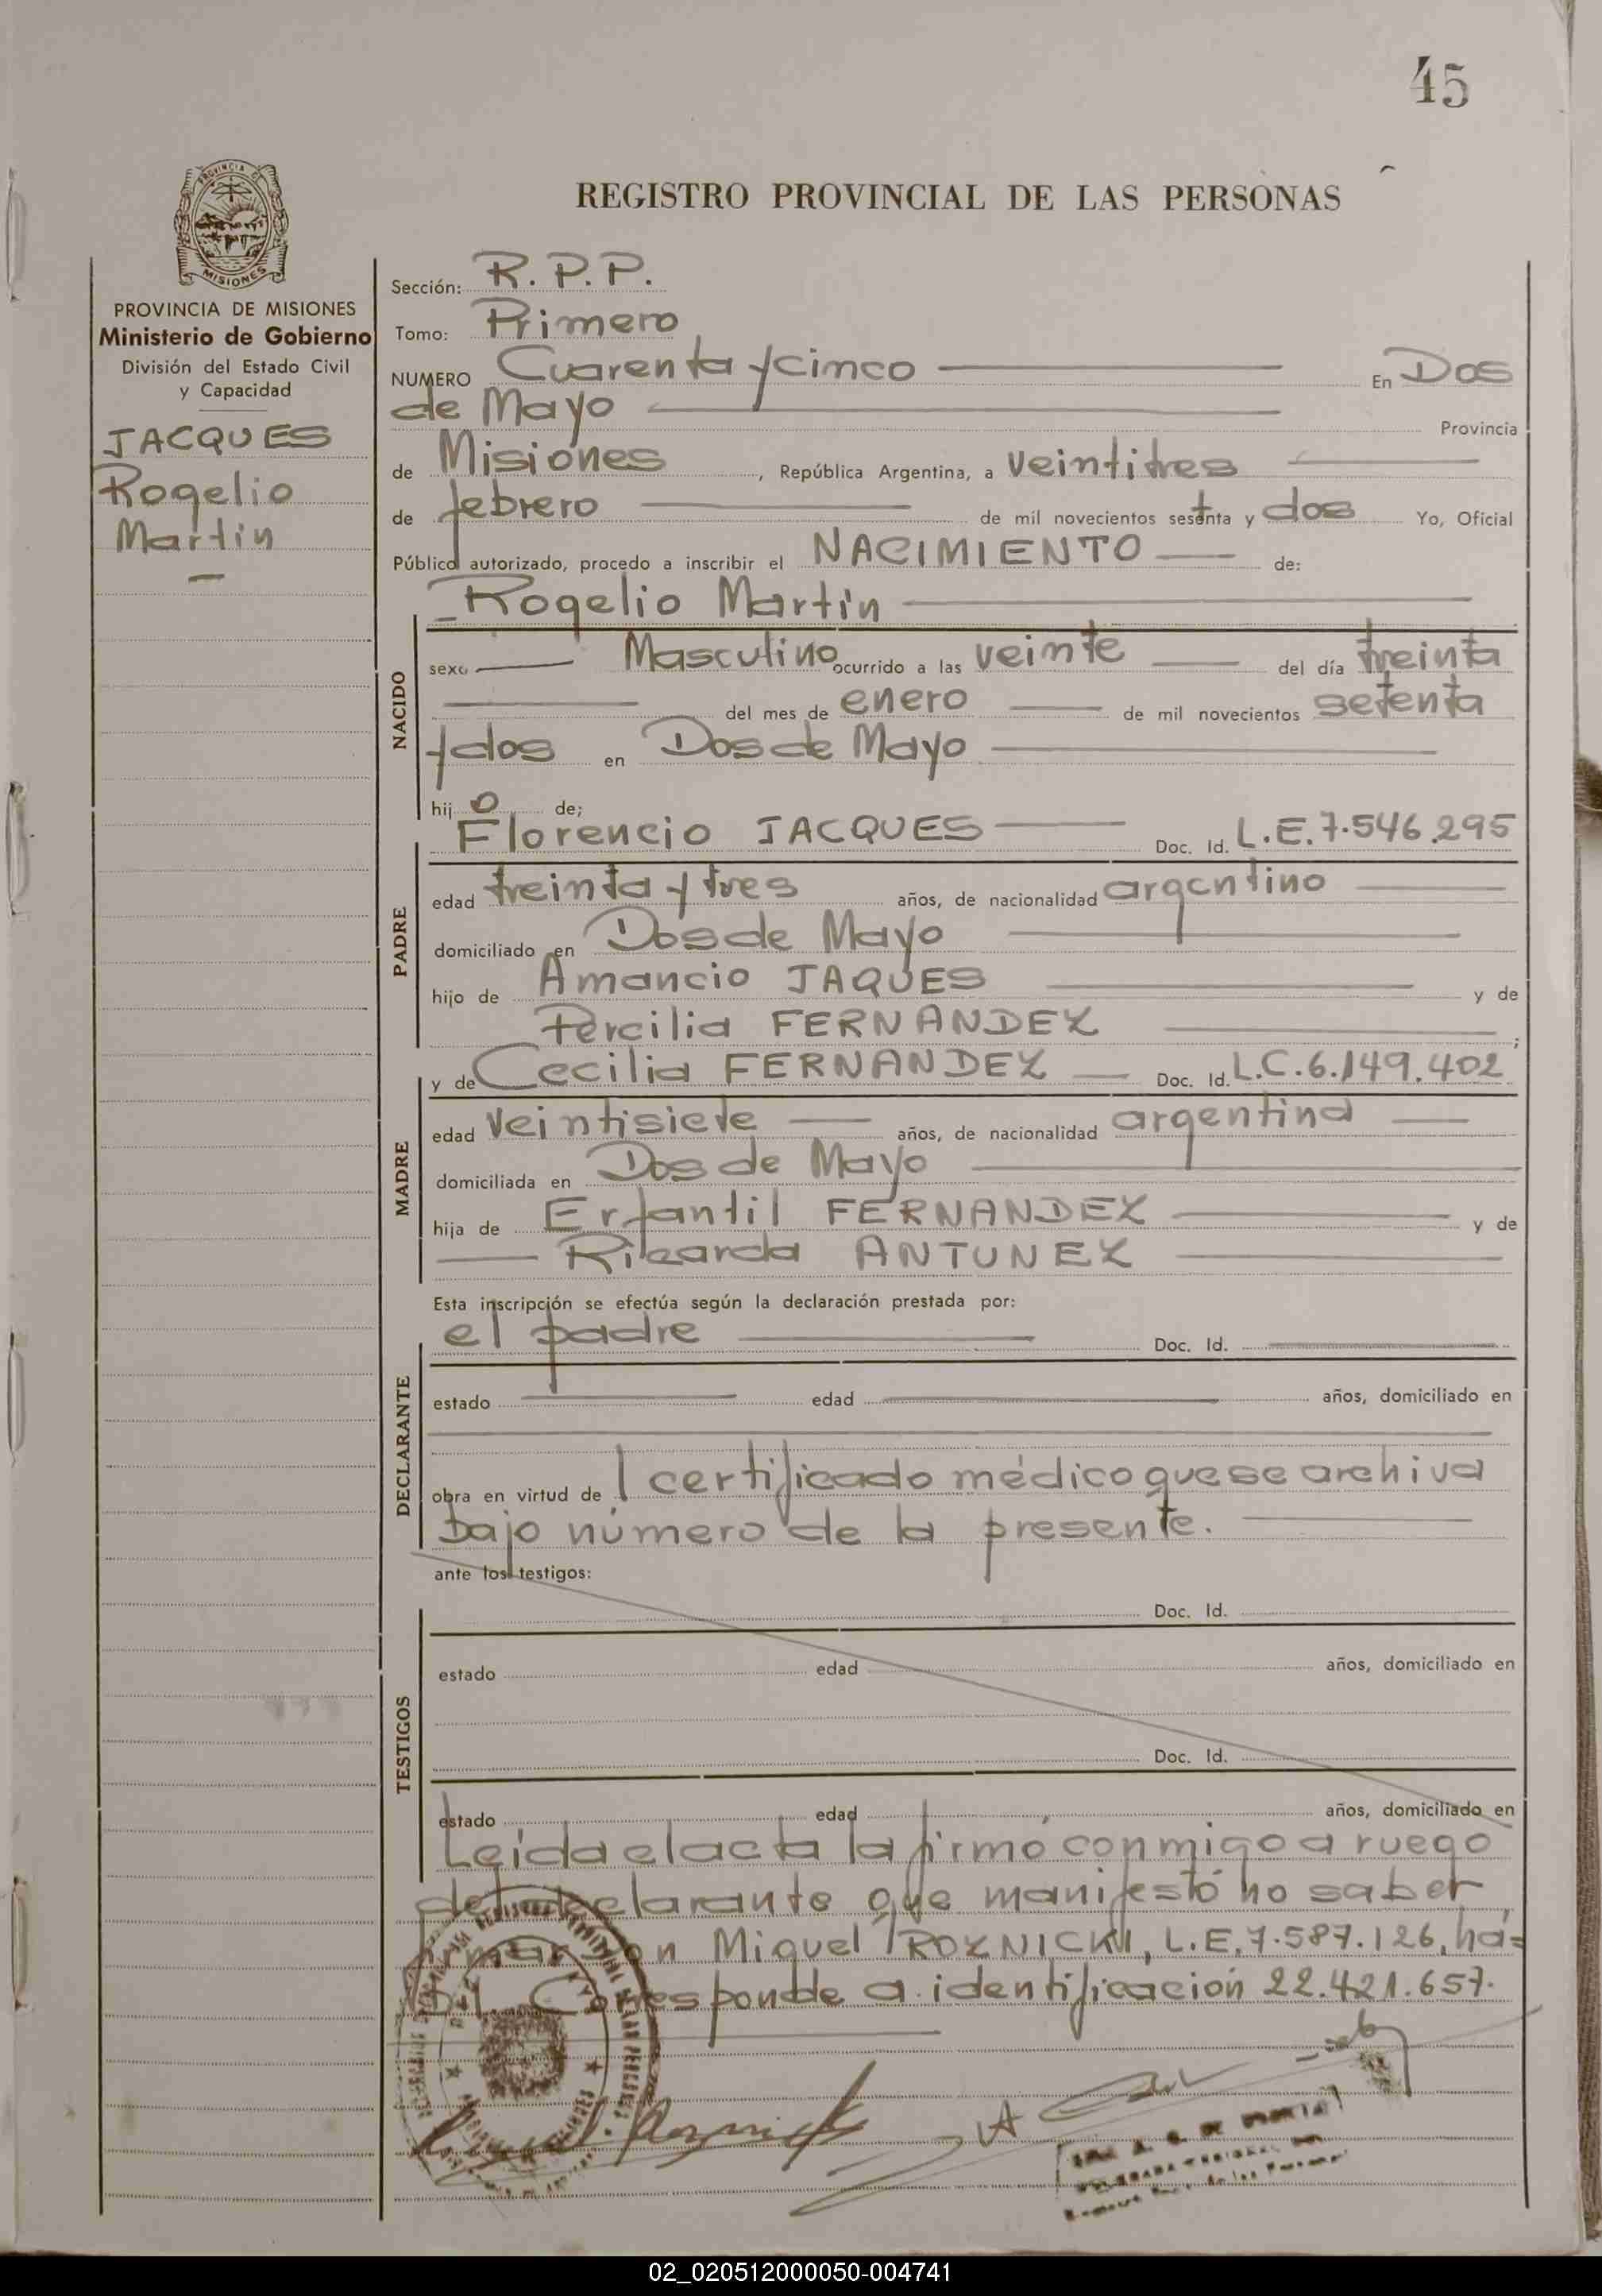 45
PROVINCIA DE MISIONES
REGISTRO PROVINCIAL DE LAS PERSONAS
PROVINCIA DE MISIONES
Ministerio de Gobierno
División del Estado Civil
y Capacidad
JACQUES
Rogelio
Martín
Sección: R.P.P.
Tomo: Primero
NUMERO Cuarenta y cinco En Dos
de Mayo Provincia
de Misiones, República Argentina, a veintitres
de febrero de mil novecientos setenta y dos Yo, Oficial
Público autorizado, procedo a inscribir el NACIMIENTO de:
Rogelio Martín
NACIDO
sexo Masculino ocurrido a las veinte del día treinta
del mes de enero de mil novecientos setenta
y dos en Dos de Mayo
hijo de;
Florencio JACQUES Doc. Id. L.E.7.546.295
PADRE
edad treinta y tres años, de nacionalidad argentino
domiciliado en Dos de Mayo
hijo de Amancio JAQUES y de
Percilia FERNANDEZ;
MADRE
y de Cecilia FERNANDEZ Doc. Id. L.C.6.149.402
edad veintisiete años, de nacionalidad argentina
domiciliada en Dos de Mayo
hija de Erfantil FERNANDEZ y de
Ricarda ANTUNEZ
Esta inscripción se efectúa según la declaración prestada por:
el padre Doc. Id.
DECLARANTE
estado edad años, domiciliado en
obra en virtud de l certificado médico que se archiva
bajo número de la presente.
ante los testigos:
TESTIGOS
Doc. Id.
estado edad años, domiciliado en
Doc. Id.
estado edad años, domiciliado en
Leída el acta la firmó conmigo a ruego
del declarante que manifestó no saber
firmar don Miguel ROZNICKI, L.E.7.587.126, há=
bil. Corresponde a identificación 22.421.657.
02_020512000050-004741